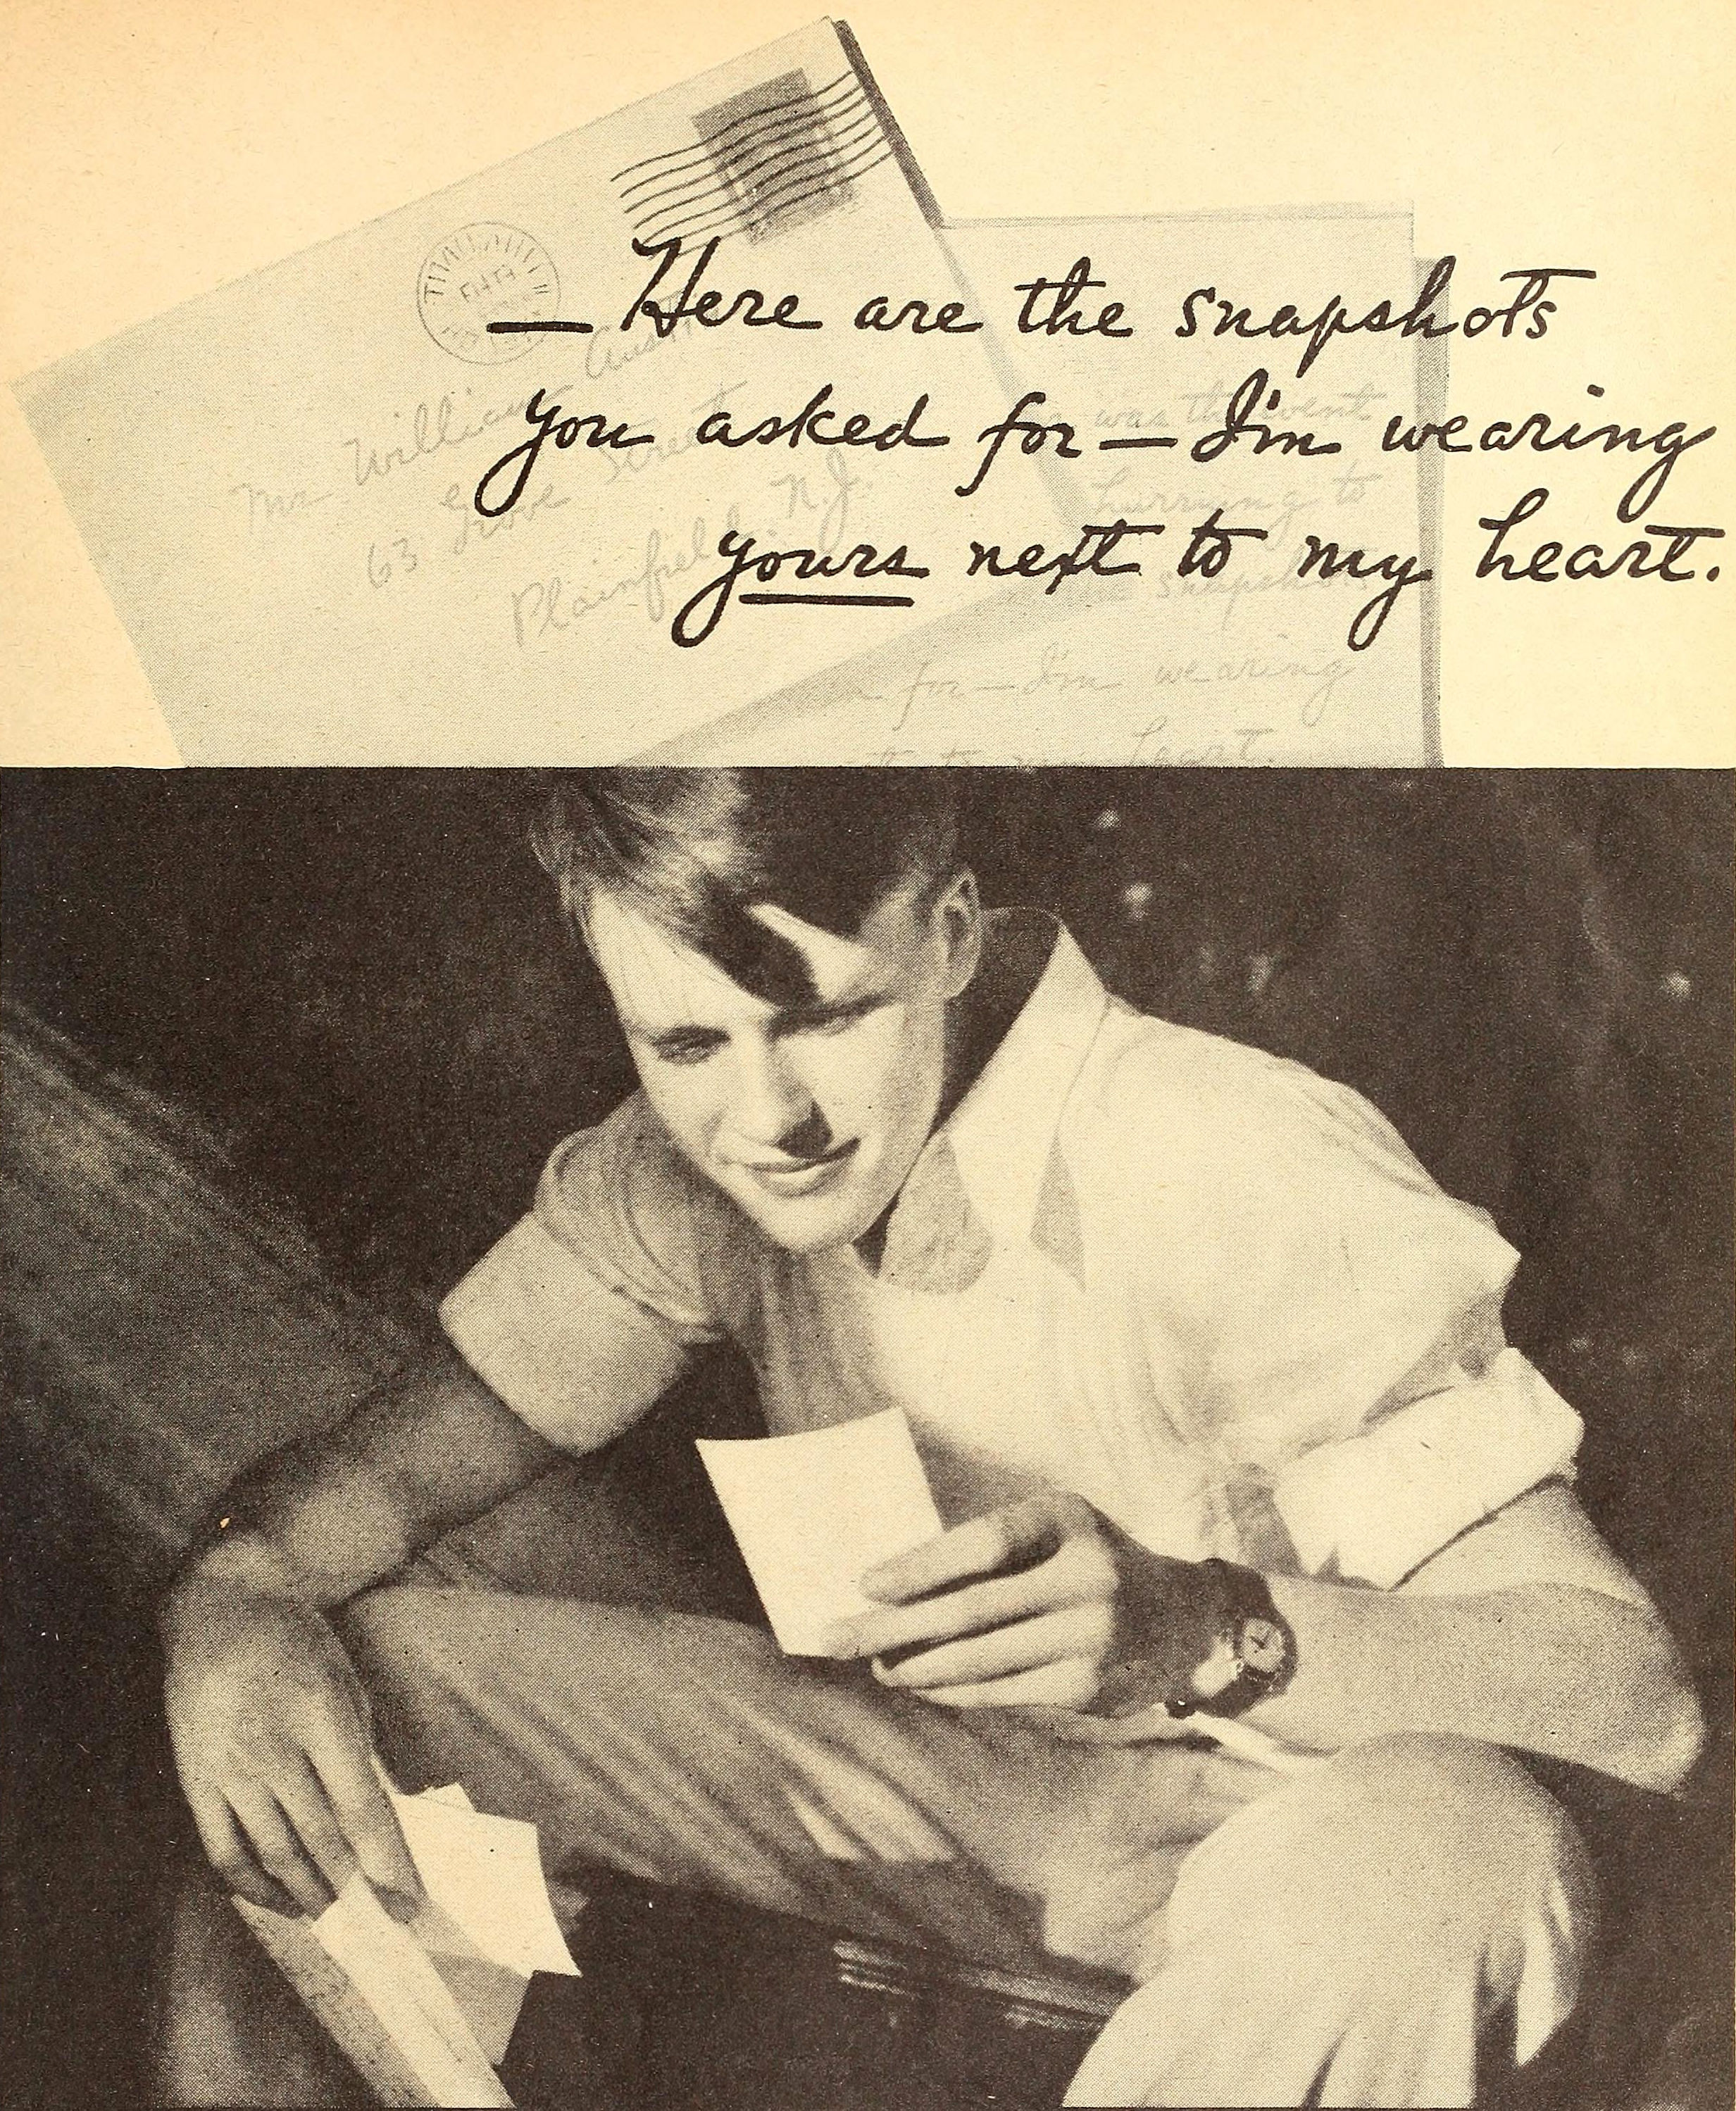 — Here are the snapshots
you asked for — I'm wearing
yours next to my heart.
Mr William Austin
63 Grove Street
Plainfield, N.J.
was the event
hurrying to
snapsh
for — I'm wearing
to my heart.